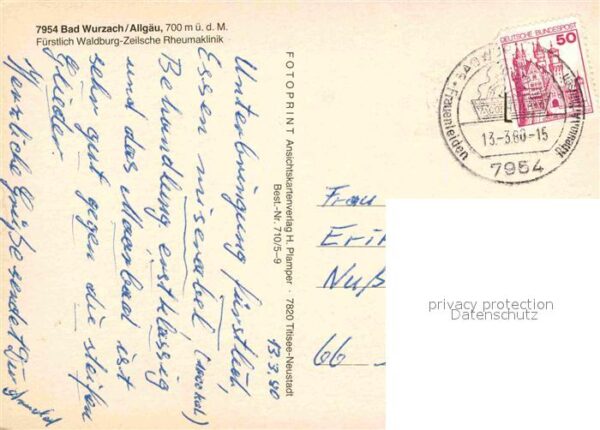 7954 Bad Wurzach/Allgäu, 700 m ü. d. M.
Fürstlich Waldburg-Zeilsche Rheumaklinik
13.3.80
Unterbringung fürstlich,
Essen miserabel
Behandlung erstklassig
und das Moorbad ist
sehr gut gegen die steifen
Glieder
Herzliche Grüße sendet Dir
FOTOPRINT Ansichtskartenverlag H. Plamper · 7820 Titisee-Neustadt
Best.-Nr. 710/5-9
DEUTSCHE BUNDESPOST
50
Frauenleiden
13.-3.80-15
7954
Frau
Nuß
66
privacy protection
Datenschutz